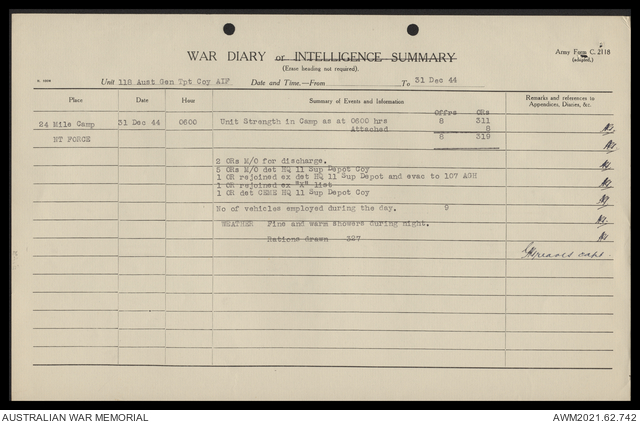 WAR DIARY or INTELLIGENCE SUMMARY
Army Form C. 2118
(adapted.)
(Erase heading not required).
Unit 118 Aust Gen Tpt Coy AIF Date and Time.—From To 31 Dec 44
Place Date Hour Summary of Events and Information Remarks and references to Appendices, Diaries, &c.
Offrs ORs
24 Mile Camp 31 Dec 44 0600 Unit Strength in Camp as at 0600 hrs 8 311
Attached 8
NT FORCE 8 319
2 ORs M/O for discharge.
5 ORs M/O det HQ 11 Sup Depot Coy
1 OR rejoined ex det HQ 11 Sup Depot and evac to 107 AGH
1 OR rejoined ex "X" list
1 OR det CEME HQ 11 Sup Depot Coy
No of vehicles employed during the day. 9
WEATHER Fine and warm showers during night.
Rations drawn 327
AUSTRALIAN WAR MEMORIAL
AWM2021.62.742